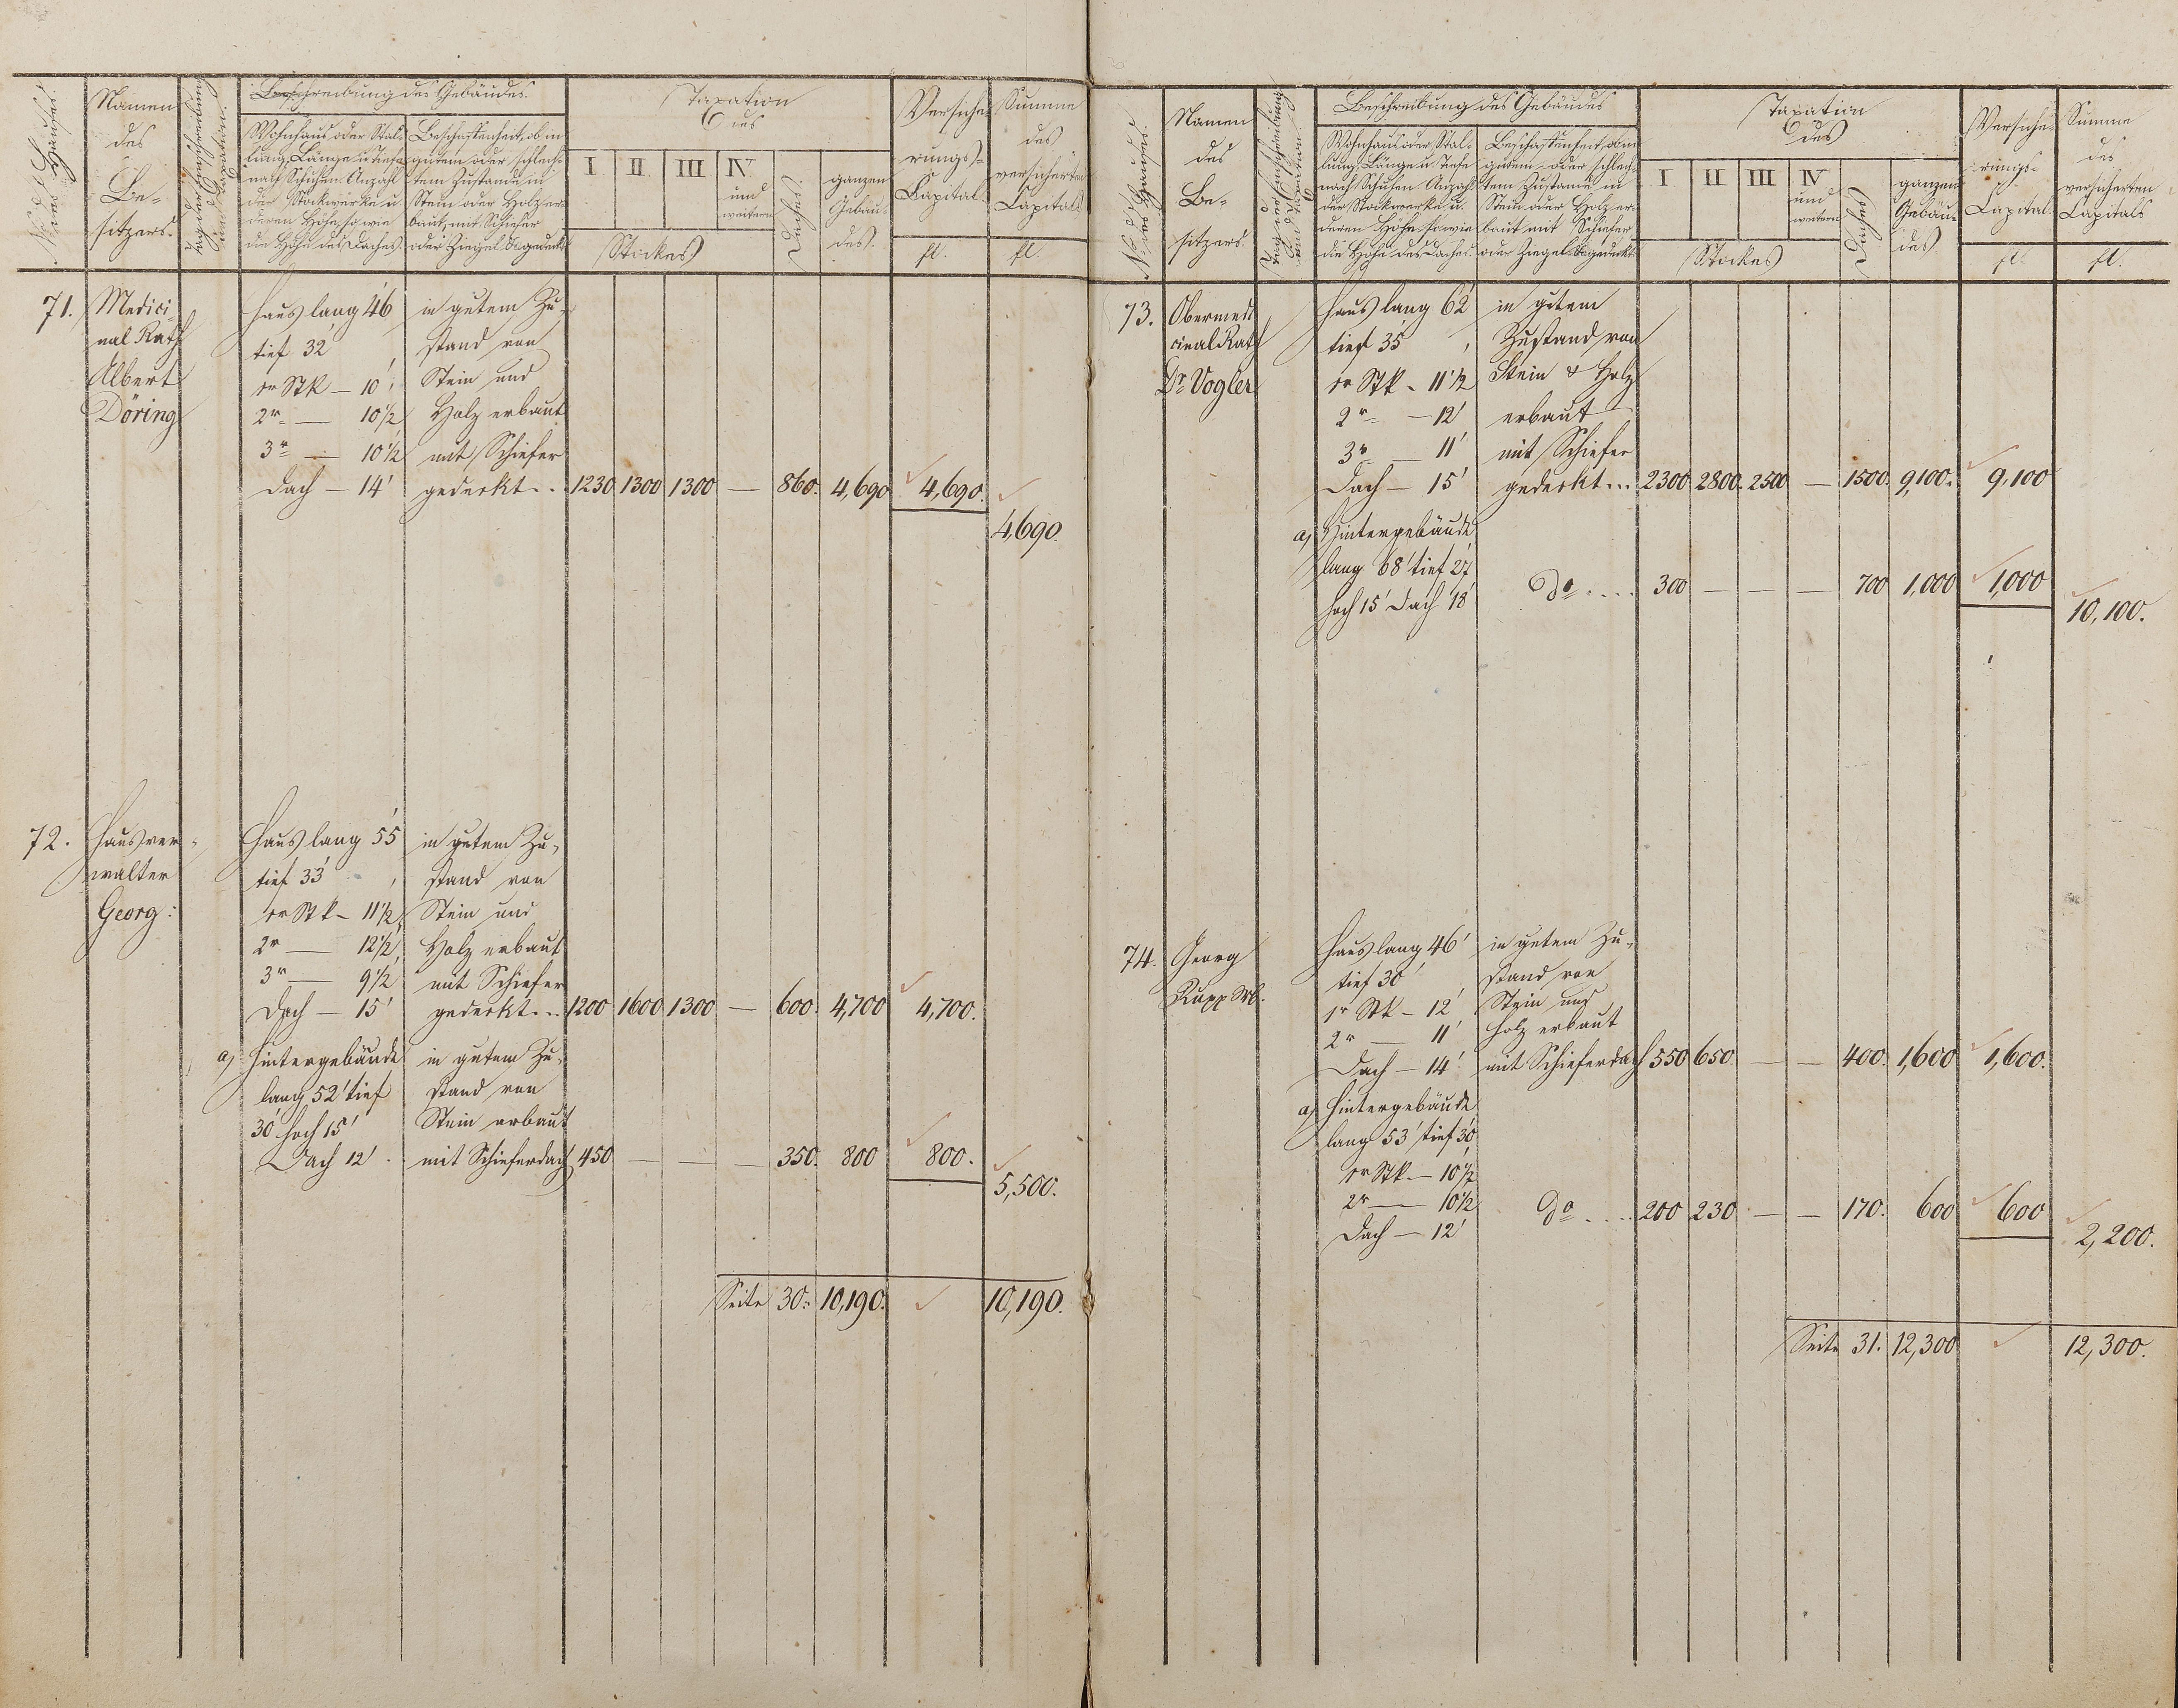 No des Hauses.
Namen
des
Be-
sitzers.
Tag der Einschreibung
und Taxation.
Beschreibung des Gebäudes.
Wohnhaus oder Stal-
lung, Länge u Tiefe
nach Schuhen Anzahl
der Stockwerke u
deren Höhe so wie
die Höhe des Daches.
Beschaffenheit, ob in
gutem oder schlech-
tem Zustande in
Stein oder Holz er-
baut, mit Schiefer
oder Ziegel &c gedeckt
Taxation
des
I II III IV
und
weitern
Stockes
Daches.
ganzen
Gebäu-
des.
Versiche-
rungs-
Capital.
fl.
Summe
des
versicherten
Capitals
fl.
71. Medici-
nal Rath
Albert
Döring
Haus lang 46
tief 32'
1r Stk - 10'
2r — 10½
3r — 10½
Dach — 14'
in gutem Zu-
stand von
Stein und
Holz erbaut
mit Schiefer
gedeckt... 1230 1300 1300 — 860. 4,690 4,690.
4,690.
72. Hausver-
walter
Georg:
Haus lang 55
tief 33'
1r Stk - 11½
2r — 12½
3r — 9½
Dach — 15'
in gutem Zu-
stand von
Stein und
Holz erbaut
mit Schiefer
gedeckt... 1200 1600 1300 — 600. 4,700 4,700.
a) Hintergebäude
lang 52' tief
30' hoch 15'
Dach 12'
in gutem Zu-
stand von
Stein erbaut
mit Schieferdach 450 — — — 350. 800 800.
5,500.
Seite 30: 10,190. 10,190.
No des Hauses.
Namen
des
Be-
sitzers.
Tag der Einschreibung
und Taxation.
Beschreibung des Gebäudes
Wohnhaus oder Stal-
lung, Länge u. Tiefe
nach Schuhen Anzahl
der Stockwerke u.
deren Höhe so wie
die Höhe des Daches.
Beschaffenheit, ob in
gutem oder schlech-
tem Zustande in
Stein oder Holz er-
baut mit Schiefer
oder Ziegel &c gedeckt
Taxation
des
I II III IV
und
weitern
Stockes
Daches
ganzen
Gebäu-
des
Versiche-
rungs-
Capital.
fl.
Summe
des
versicherten
Capitals
fl.
73. Obermedi
cinal Rath
Dr. Vogler
Haus lang 62'
tief 35'
1r Stk - 11½
2r — 12'
3r — 11'
Dach — 15'
in gutem
Zustand von
Stein & Holz
erbaut
mit Schiefer
gedeckt... 2300 2800. 2500 — 1500. 9,100. 9,100
a) Hintergebäude
lang 68' tief 27'
hoch 15' Dach 18'
do .... 300 — — — 700 1,000 1,000
10,100.
74. Georg
Rupp
Haus lang 46'
tief 30'
1r Stk - 12'
2r — 11'
Dach — 14'
in gutem Zu-
stand von
Stein und
Holz erbaut
mit Schieferdach 550 650. — — 400. 1,600 1,600.
a) Hintergebäude
lang 53' tief 30'
1r Stk — 10½
2r — 10½
Dach — 12'
do .... 200 230 — — 170. 600 600
2,200.
Seite 31. 12,300 12,300.